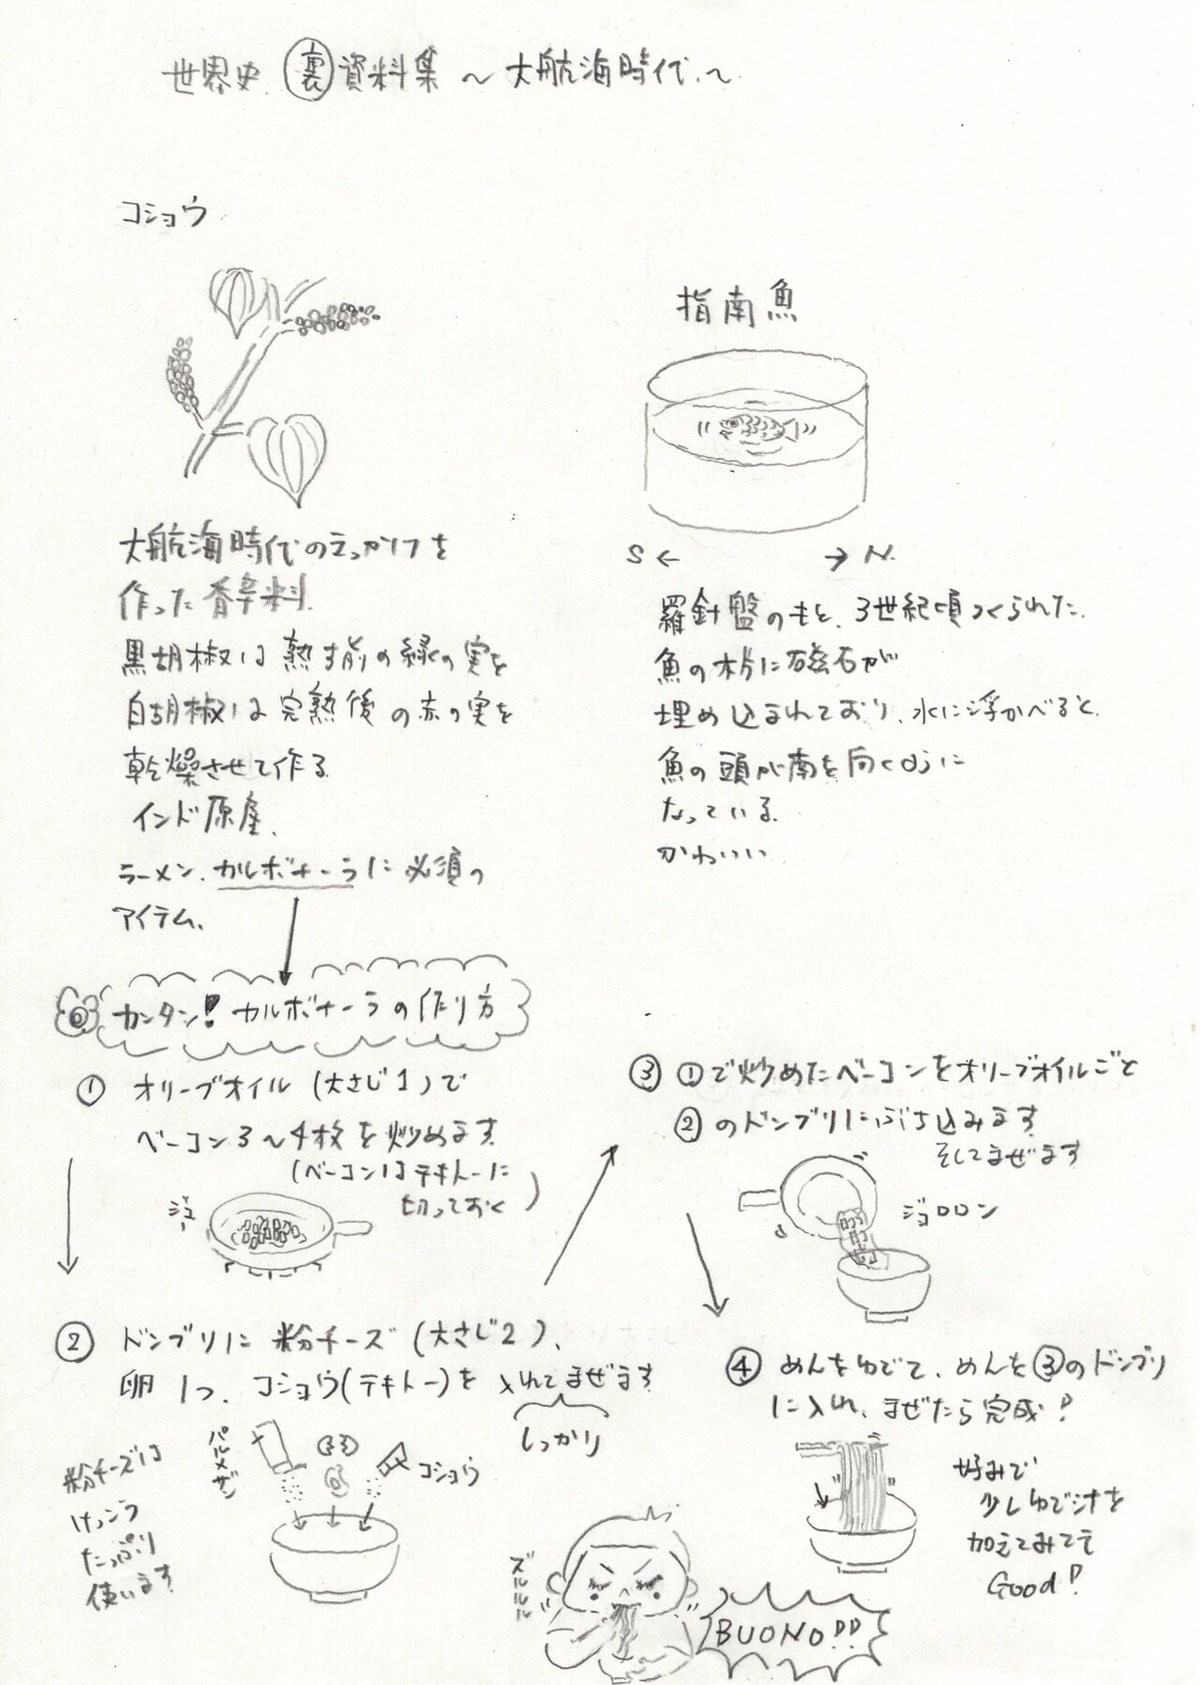 世界史 裏 資料集 ～大航海時代～
コショウ
大航海時代のきっかけを
作った香辛料.
黒胡椒は熟す前の緑の実を
白胡椒は完熟後の赤の実を
乾燥させて作る.
インド原産.
ラーメン、カルボナーラに必須の
アイテム.
指南魚
S ← → N.
羅針盤のもと、3世紀頃つくられた.
魚の木片に磁石が
埋め込まれており、水に浮かべると
魚の頭が南を向くように
なっている.
かわいい
カンタン!カルボナーラの作り方
① オリーブオイル(大さじ1)で
ベーコン3～4枚を炒めます
(ベーコンはテキトーに
切っておく)
ジュー
② ドンブリに粉チーズ(大さじ2)、
卵1つ、コショウ(テキトー)を入れてまぜます
しっかり
粉チーズは
けっこう
たっぷり
使います
パルメザン
コショウ
③ ①で炒めたベーコンをオリーブオイルごと
②のドンブリにぶち込みます
そしてまぜます
ジョロロン
④ めんをゆでて、めんを③のドンブリ
に入れ、まぜたら完成!
好みで
少しゆで汁を
加えてみても
Good!
ズルルル
BUONO!!